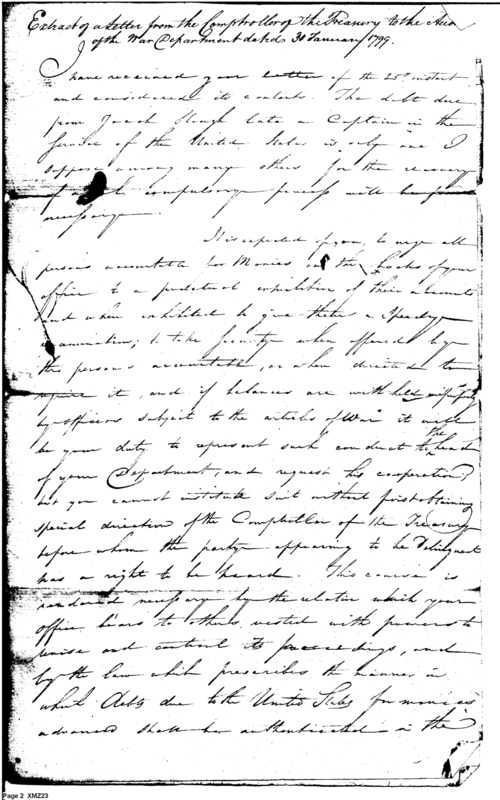 Extract of a Letter from the Comptroller of the Treasury to the Acco
of the War Department dated 30 January 1799.
I have received your letter of the 25th instant
and considered its contents. The debt due
from Jacob Slough late a Captain in the
Service of the United States is only one I
suppose among many others for the recovery
of which compulsory process will be found
necessary.
It is expected of you, to urge all
persons accountable for Monies on the books of your
office to a punctual exhibition of their accounts
and when exhibited to give them a Speedy
examination; to take Security when offered by
the persons accountable, or when directed to
require it, and if balances are withheld
by officers subject to the articles of War it will
be your duty to represent such conduct to the head
of your Department, and request his cooperation;
but you cannot institute Suit without first obtaining
special direction of the Comptroller of the Treasury
before whom the party appearing to be Delinquent
has a right to be heard. This course is
rendered necessary by the relation which your
office bears to others, vested with powers to
revise and control its proceedings, and
by the law which prescribes the manner in
which debts due to the United States for monies
advanced shall be authenticated in the
Page 2 XMZ23